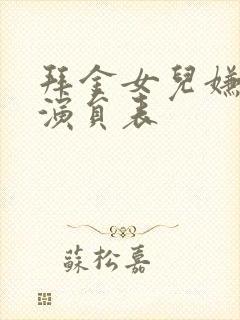 拜金女兒嫌
演員表
蘇松嘉